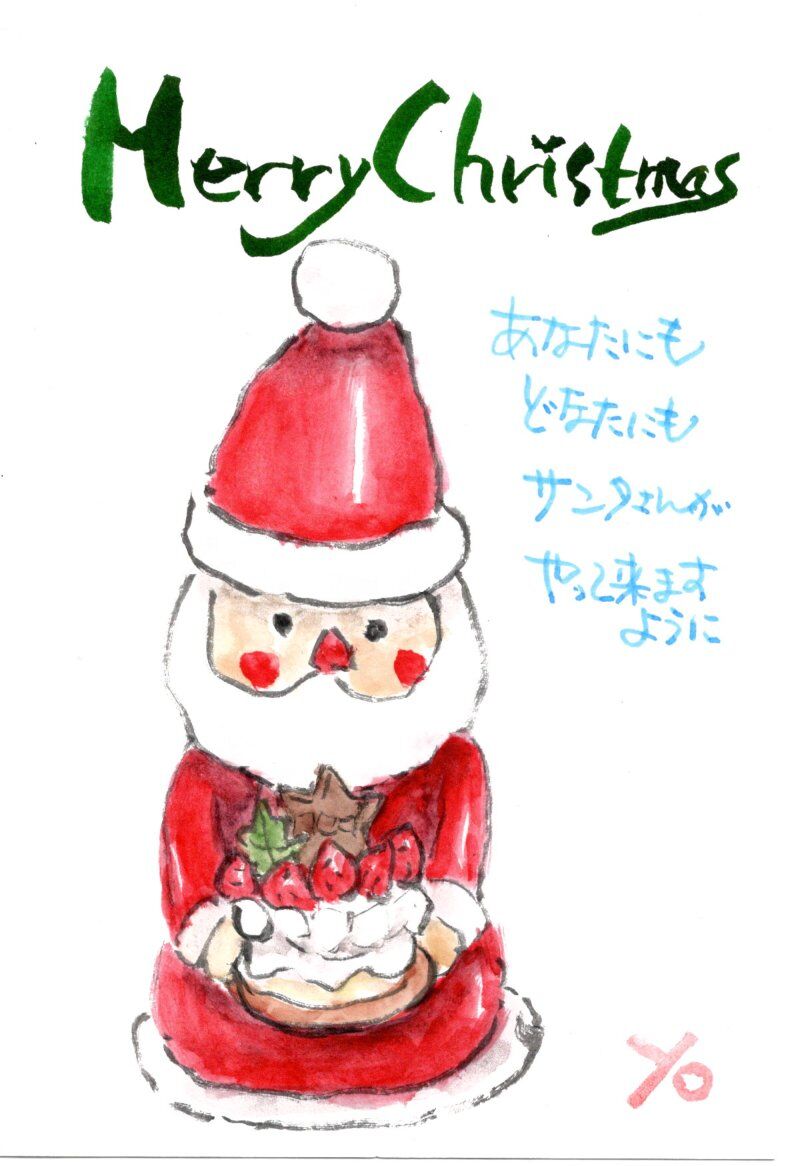 Merry Christmas
あなたにも
どなたにも
サンタさんが
やって来ます
ように
Yo